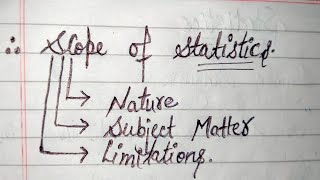 ∴ Scope of Statistics.
→ Nature
→ Subject Matter
→ Limitations.